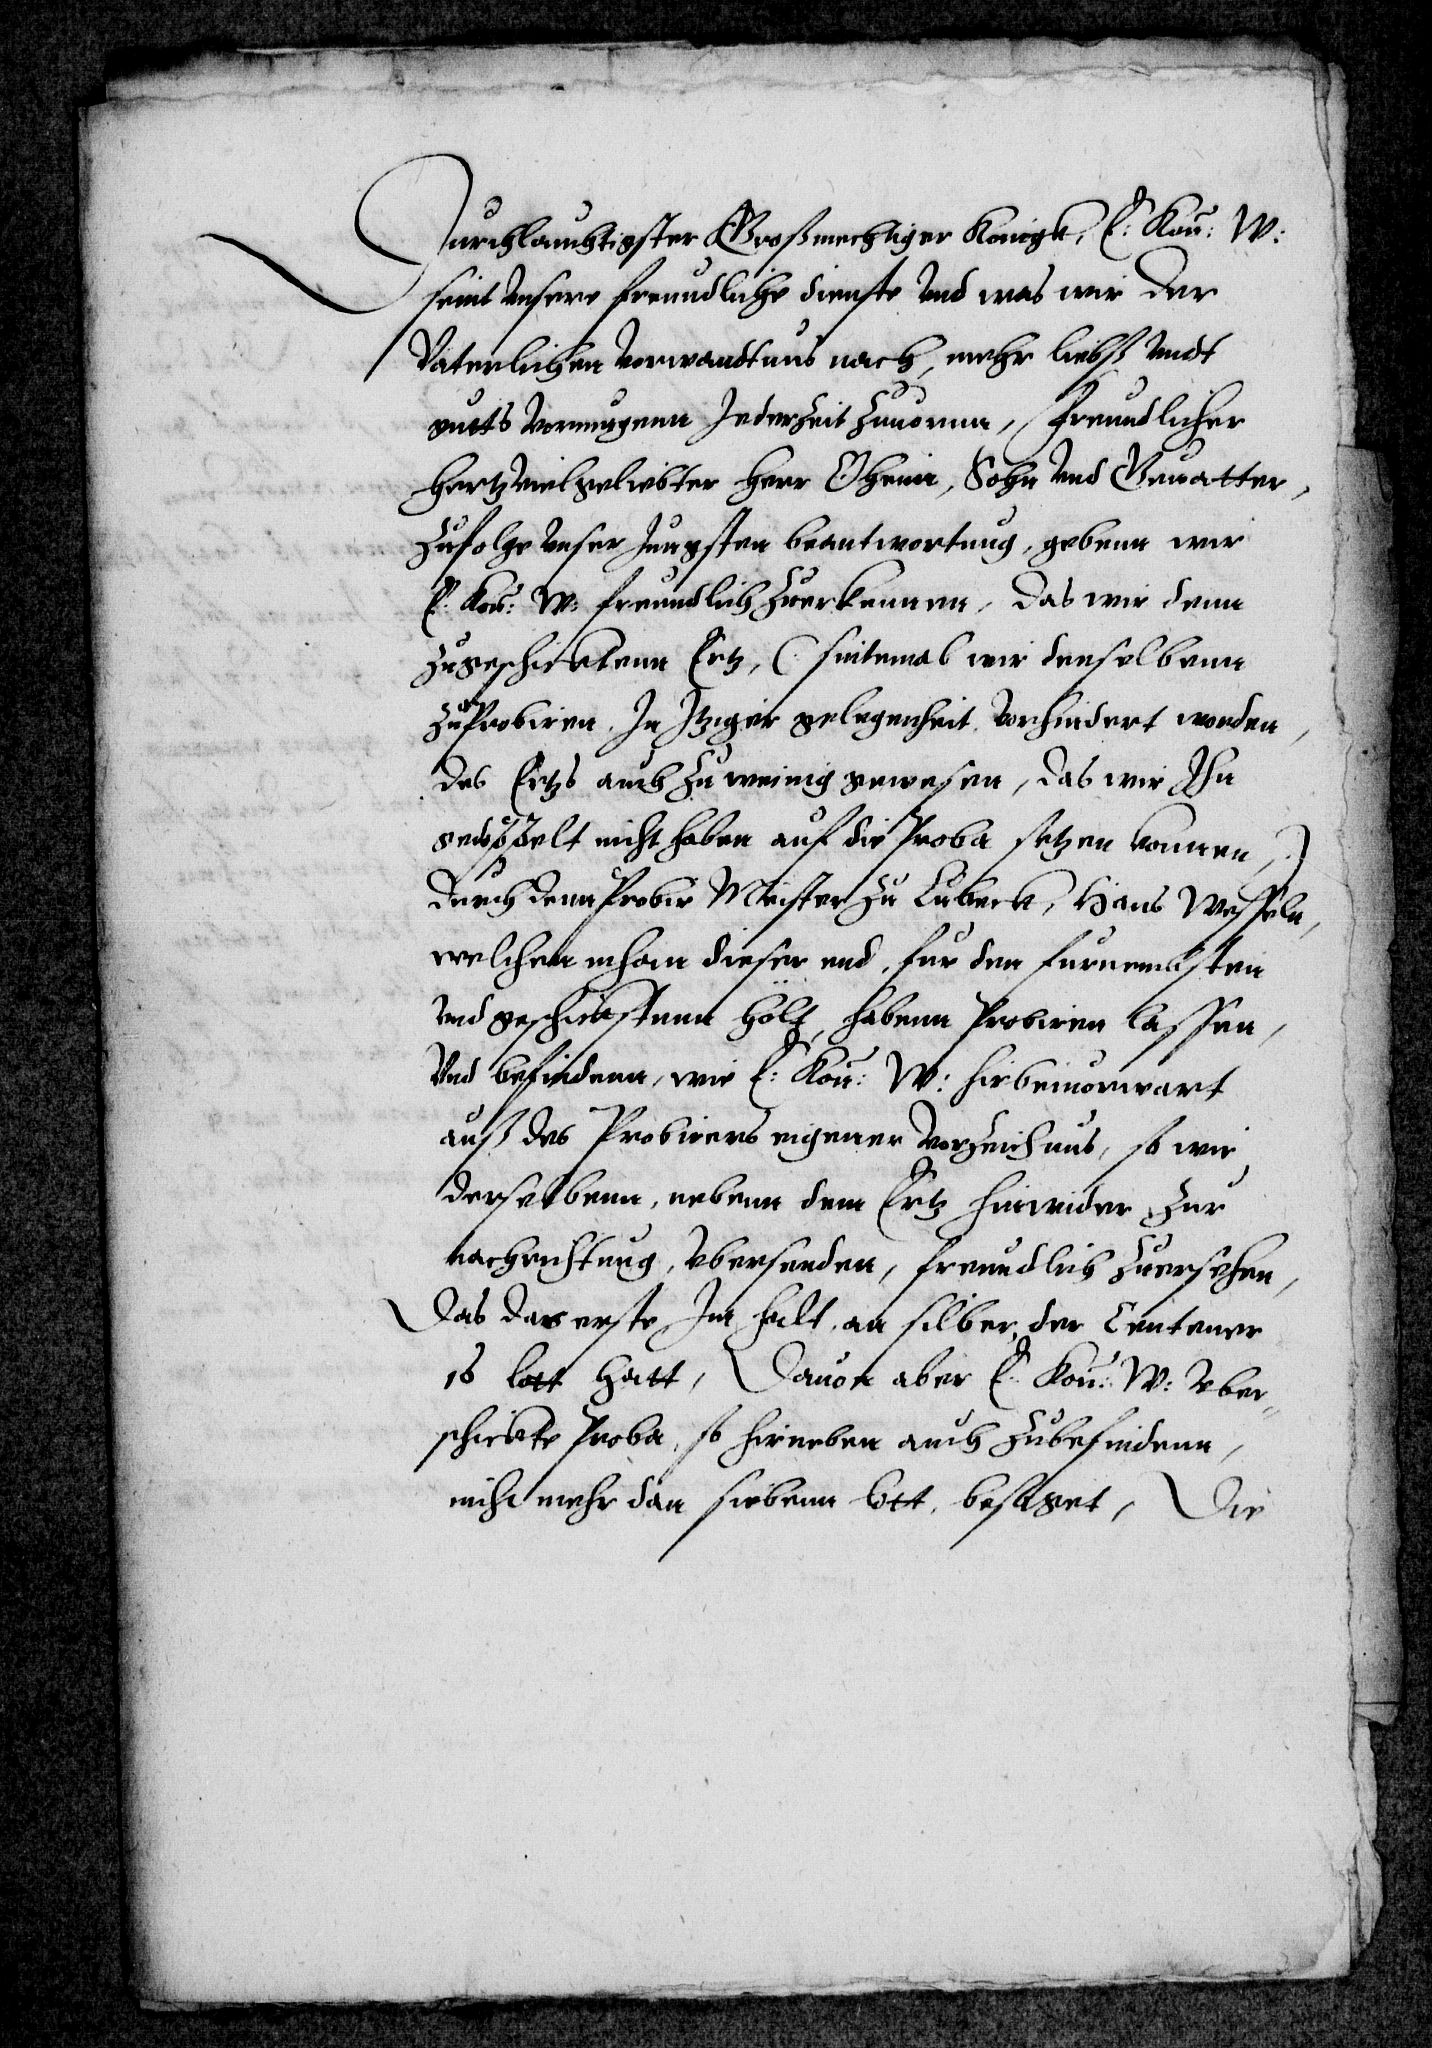 Durchlauchtigster Großmechtiger Konigk, E: Kön: W:
seint unsere freundliche dienste und was wir der
Väterlichen vorwandtnus nach, mehr liebß undt
gutts vormugenn Jederzeit zuuornn, Freundlicher
hertzvielgeliebter Herr Oheim, Sohn und Geuatter,
Zufolge unser Jungsten beantwortung, gebenn wir
E: Kön: W: freundlich zuerkennen, das wir denn
zugeschicktenn Ertz, (: sintemal wir denselbenn
zu Probiren, In Itziger gelegenheit vorhindert worden,
des Ertzs auch zu weinig gewesen, das wir Ihn
nicht haben auf die Proba setzen konnen, :)
durch denn Probir Meister zu Lubeck, Hans Wesseln,
welchen mhan dieser end, fur den furnembsten
und geschicktstenn hölt, habenn Probiren lassen,
Und befindenn, wie E: Kön: W: hirbeiuorwart
auß des Probirers eigener vorzeichnus, so wir
derselbenn, nebenn dem Ertz hinwider zur
nachrichtung, ubersenden, freundlich zuersehen,
Das das erste Im halt, an silber, der Centener
16 lott hatt, Dauon aber E: Kön: W: uber=
schickte Proba, so hirneben auch zubefindenn,
nicht mehr dan siebenn lott, besaget, Die